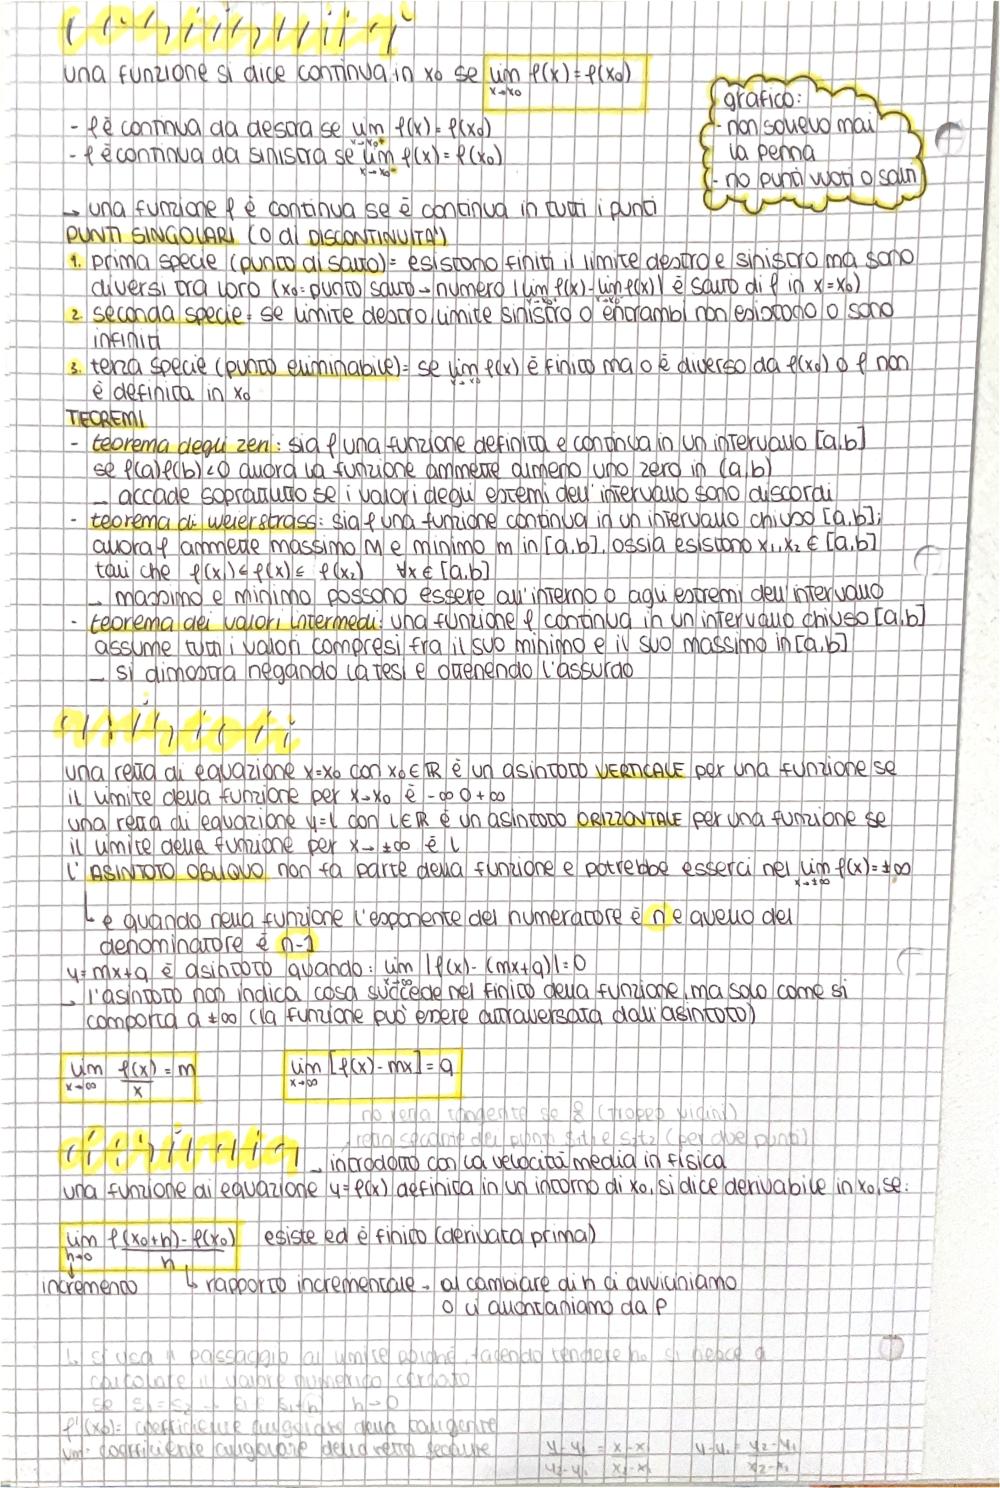 continuità
una funzione si dice continua in x₀ se lim x→x₀ f(x) = f(x₀)
grafico:
- non sollevo mai
la penna
- no punti vuoti o salti
- f è continua da destra se lim x→x₀⁺ f(x) = f(x₀)
- f è continua da sinistra se lim x→x₀⁻ f(x) = f(x₀)
→ una funzione f è continua se è continua in tutti i punti
PUNTI SINGOLARI (O di DISCONTINUITA')
1. prima specie (punto di salto) = esistono finiti il limite destro e sinistro ma sono
diversi tra loro (x₀ = punto salto → numero |lim f(x) - lim f(x)| è salto di f in x=x₀)
2. seconda specie = se limite destro, limite sinistro o entrambi non esistono o sono
infiniti
3. terza specie (punto eliminabile) = se lim x→x₀ f(x) è finito ma o è diverso da f(x₀) o f non
è definita in x₀
TEOREMI
- teorema degli zeri: sia f una funzione definita e continua in un intervallo [a,b]
se f(a)f(b)<0 allora la funzione ammette almeno uno zero in (a,b)
→ accade sopratutto se i valori degli estremi dell'intervallo sono discordi
- teorema di weierstrass: sia f una funzione continua in un intervallo chiuso [a,b];
allora f ammette massimo M e minimo m in [a,b], ossia esistono x₁,x₂ ∈ [a,b]
tali che f(x₁) ≤ f(x) ≤ f(x₂) ∀x ∈ [a,b]
→ massimo e minimo possono essere all'interno o agli estremi dell'intervallo
- teorema dei valori intermedi: una funzione f continua in un intervallo chiuso [a,b]
assume tutti i valori compresi fra il suo minimo e il suo massimo in [a,b]
→ si dimostra negando la tesi e ottenendo l'assurdo
asintoti
una retta di equazione x=x₀ con x₀ ∈ ℝ è un asintoto VERTICALE per una funzione se
il limite della funzione per x→x₀ è -∞ o +∞
una retta di equazione y=l con l∈ℝ è un asintoto ORIZZONTALE per una funzione se
il limite della funzione per x→ ±∞ è l
l'ASINTOTO OBLIQUO non fa parte della funzione e potrebbe esserci nel lim x→±∞ f(x) = ±∞
↳ è quando nella funzione l'esponente del numeratore è n e quello del
denominatore è n-1
y=mx+q è asintoto quando: lim x→∞ |f(x) - (mx+q)| = 0
→ l'asintoto non indica cosa succede nel finito della funzione, ma solo come si
comporta a ±∞ (la funzione può essere attraversata dall'asintoto)
lim x→∞ f(x)/x = m lim x→∞ [f(x) - mx] = q
derivata → introdotto con la velocità media in fisica
una funzione di equazione y=f(x) definita in un intorno di x₀, si dice derivabile in x₀, se:
lim h→0 f(x₀+h) - f(x₀)/h esiste ed è finito (derivata prima)
incremento ↳ rapporto incrementale → al cambiare di h ci avviciniamo
o ci allontaniamo da P
↳ si usa il passaggio al limite poiché, facendo tendere si riesce a
calcolare il valore numerico cercato
f'(x₀) = coefficiente angolare della tangente
coefficiente angolare della retta secante y-y₁/y₂-y₁ = x-x₁/x₂-x₁ y-y₁ = y₂-y₁/x₂-x₁